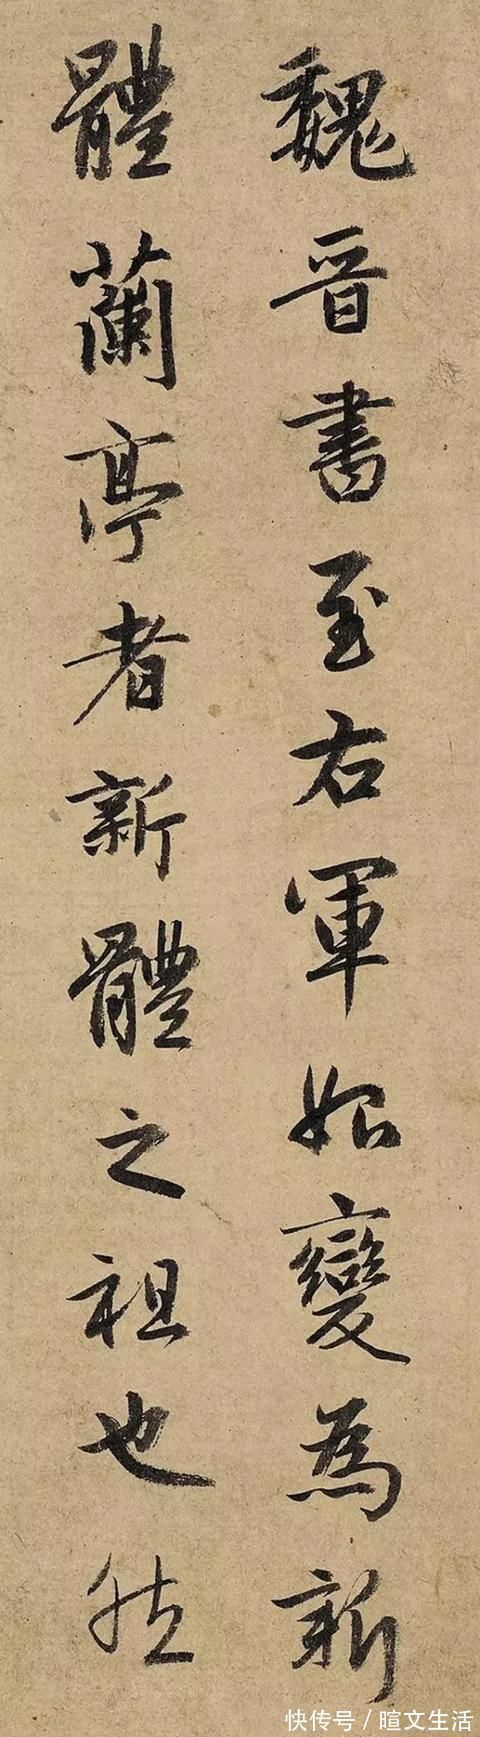 魏晉書至右軍始變為新
體蘭亭者新體之祖也然
快传号/暄文生活